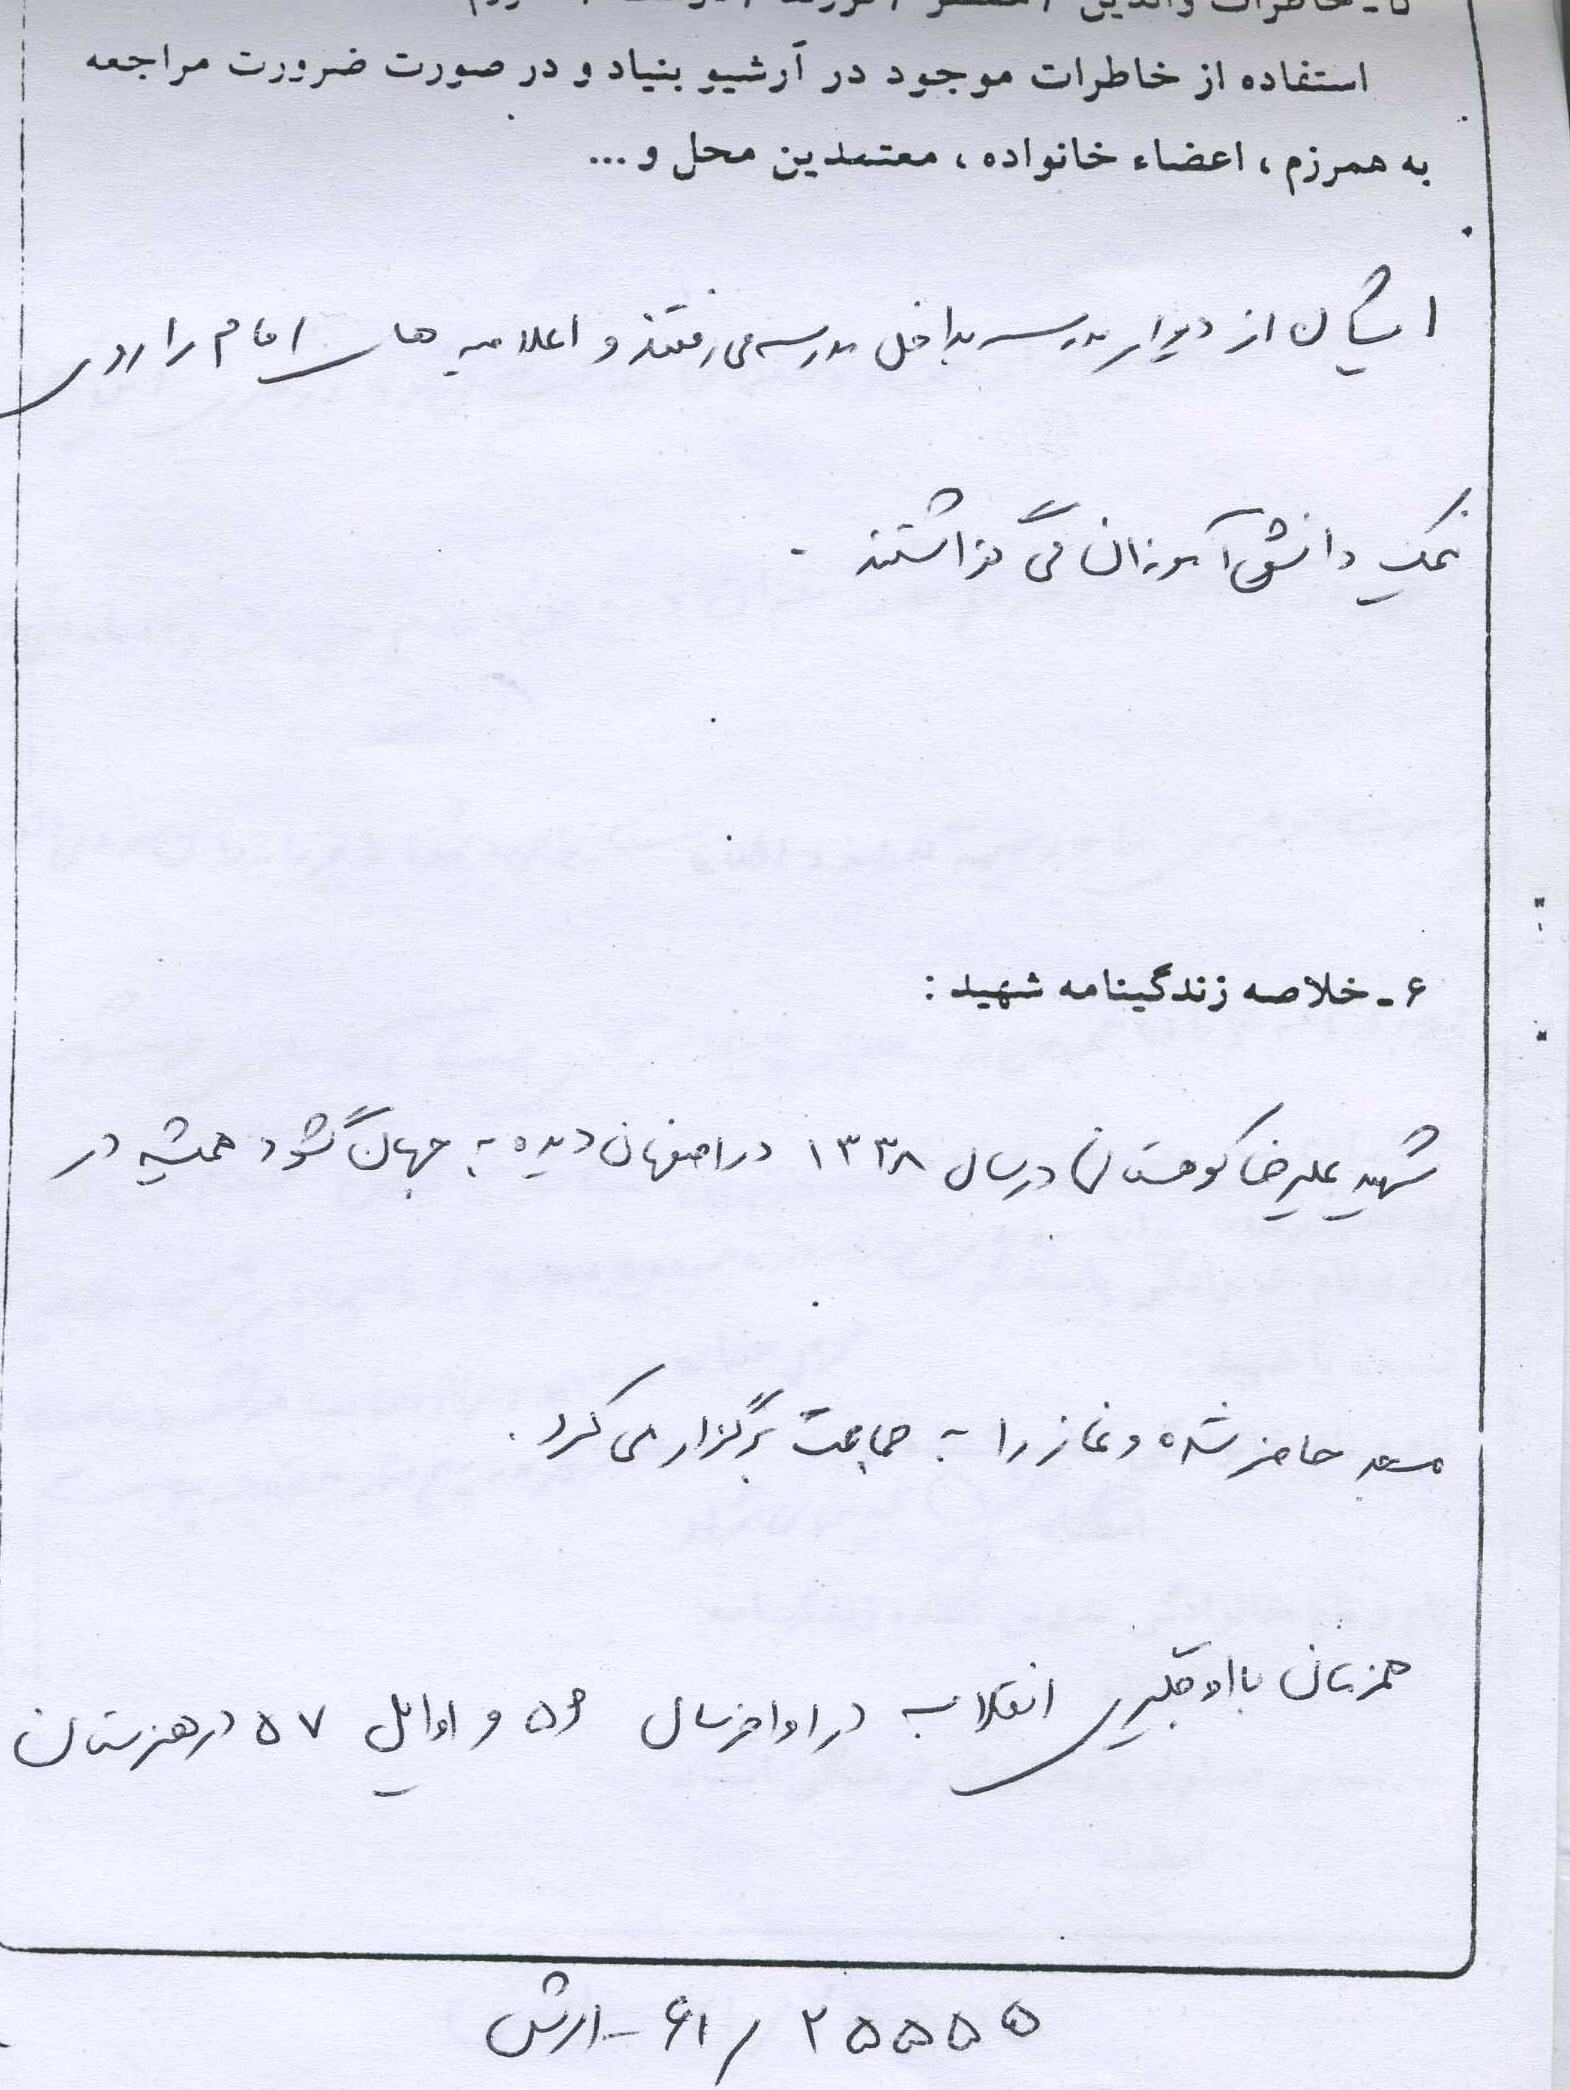 ۵ - خاطرات والدین / همسر / فرزند / دوست / همرزم
استفاده از خاطرات موجود در آرشیو بنیاد و در صورت ضرورت مراجعه
به همرزم ، اعضاء خانواده ، معتمدین محل و ...
ایشان از دیوار مدرسه بداخل مدرسه می رفتند و اعلامیه های امام را روی
نیمکت دانش آموزان می گذاشتند .
۶ - خلاصه زندگینامه شهید :
شهید علیرضا کوهستانی در سال ۱۳۳۸ در اصفهان دیده به جهان گشود همیشه در
مسجد حاضر شده و نماز را به جماعت برگزار می کرد .
همزمان با اوجگیری انقلاب در اواخر سال ۵۶ و اوایل ۵۷ در هنرستان
۲۵۵۵۵ / ۶۱ - ارتش